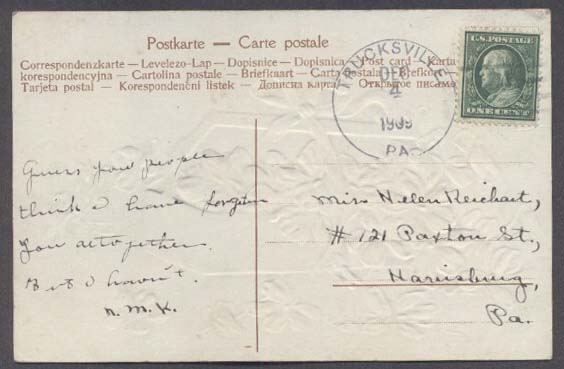 Postkarte — Carte postale
Correspondenzkarte — Levelezo-Lap — Dopisnice — Dopisnica — Post card — Karta
korespondencyjna — Cartolina postale — Briefkaart — Carta postala — Brefkort —
Tarjeta postal — Korespondenční listek — Дописна карта — Открытое письмо
TRUCKSVILLE
DEC
4
1909
PA.
U.S. POSTAGE
ONE CENT
Guess you people
think I have forgotten
you altogether.
But I haven't.
N. M. K.
Miss Helen Reichart,
# 121 Paxton St.,
Harrisburg,
Pa.